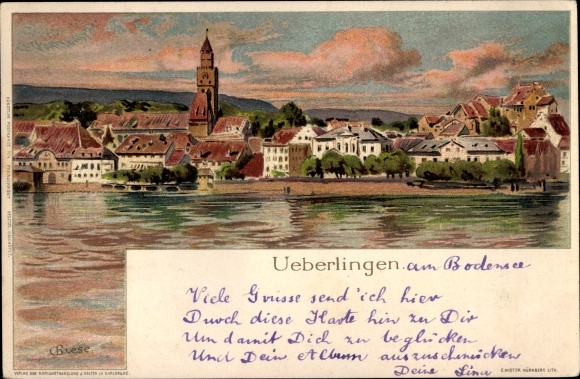 Ueberlingen am Bodensee
Viele Grüsse send' ich hier
Durch diese Karte hin zu Dir
Um damit Dich zu beglücken
Und Dein Album auszuschmücken
Deine Lina
C Biese
VERLAG DER KUNSTHANDLUNG J. VELTEN IN KARLSRUHE.
E. NISTER NÜRNBERG LITH.